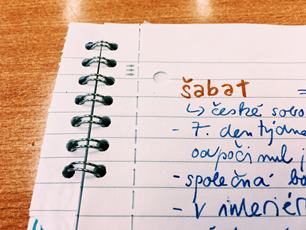 šabat =
↳ české sobo
- 7. den týdne
odpočinul j
- společná bo
- v interiér